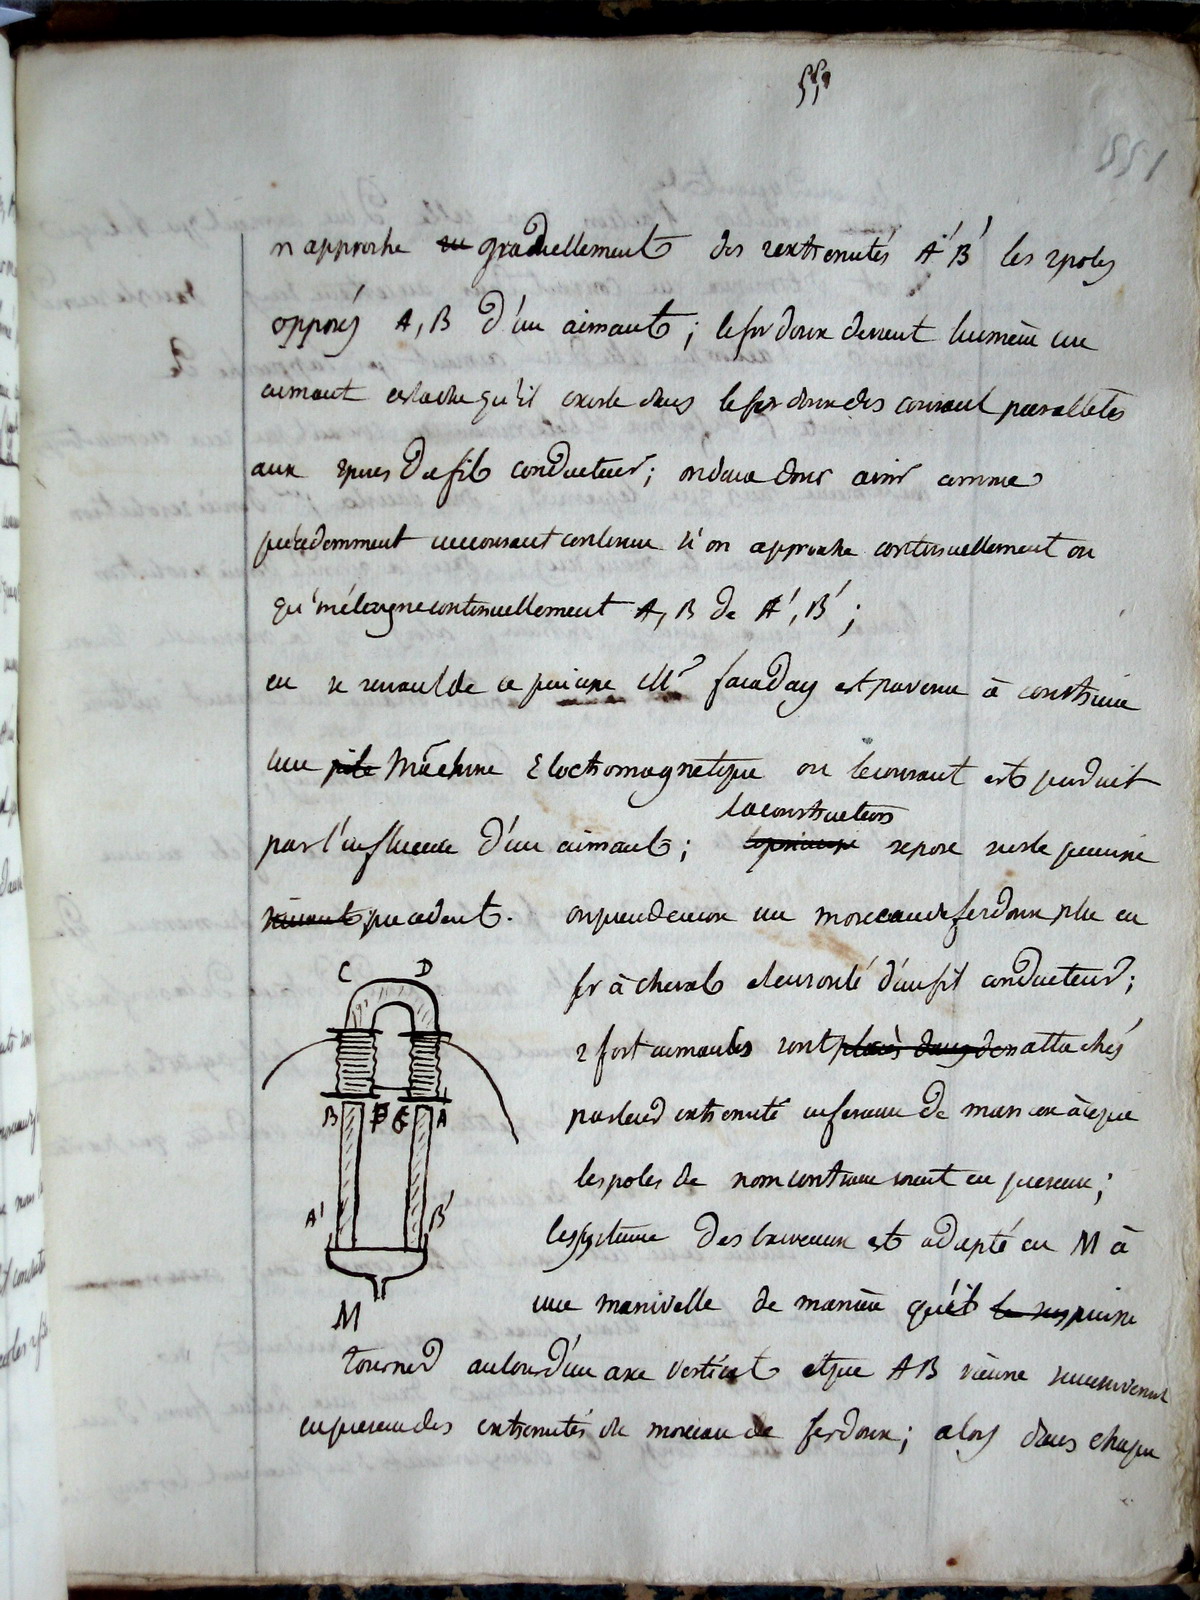 551
551
n approche ~~su~~ graduellement des 2 extremités A' B' les 2 poles
opposés A, B d'un aimant ; le fer doux devient lui même un
aimant cest adire qu'il existe dans le fer doux des courant paralleles
aux spires du fil conducteur ; on aura donc ainsi comme
précedemment un courant continu si on approche continuellement ou
qu'on éloigne continuellement A, B de A', B' ;
en se servant de ce principe Mr faraday est parvenu à construire
une ~~pile~~ Machine Electromagnetique ou le courant est produit
la construction
par l'influence d'un aimant ; ~~le principe~~ repose sur le principe
~~suivant~~ precedent. on prend encore un morceau de fer doux plié en
fer à cheval et enroulé d'un fil conducteur ;
2 fort aimants sont ~~placés dans des~~ attachés
par leur extremité inferieure de maniere à ce que
les poles de nom contraire soient en presence ;
le systeme des barreaux est adapté en M à
une manivelle de manière qu'il ~~le~~ puisse
tourner autour d'un axe vertical et que AB vienne successivement
en presence des extremités du morceau de fer doux ; alors dans chaque
C D
B F E A
A' B'
M